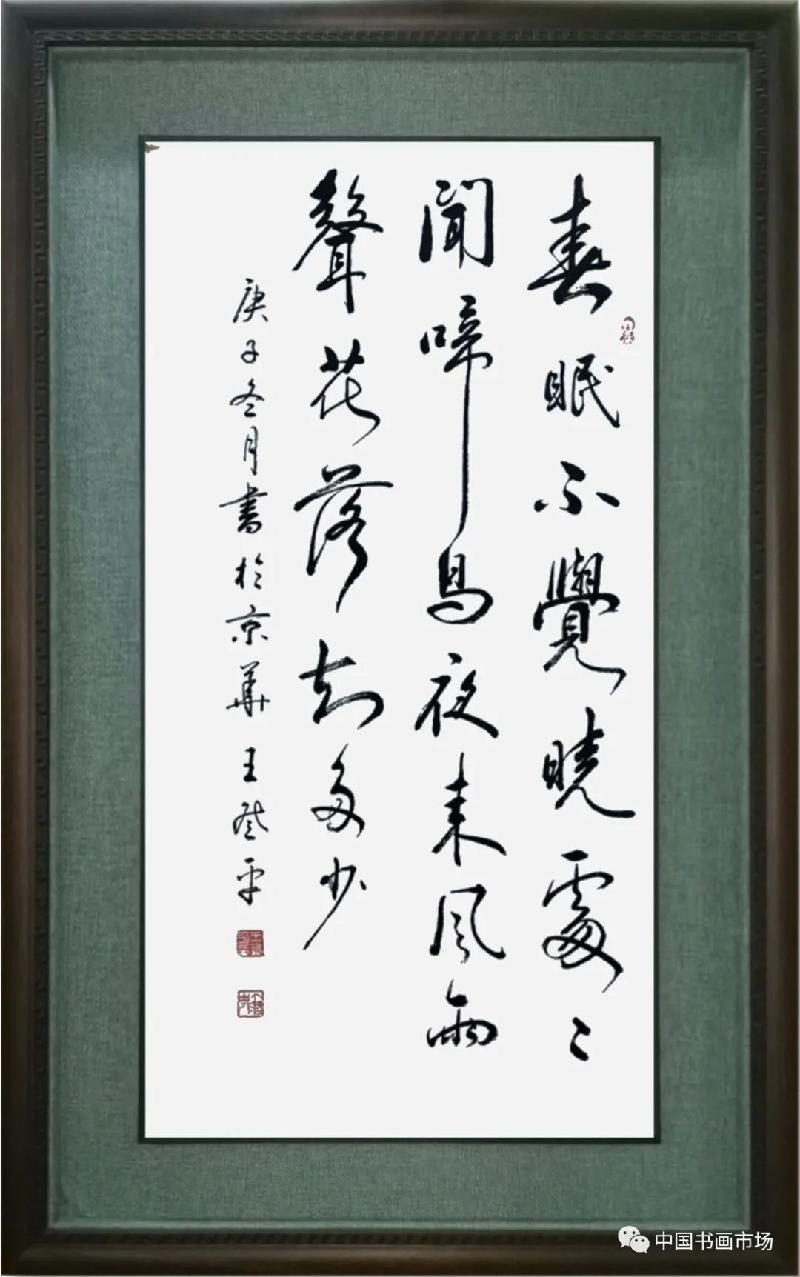 春眠不覺曉處〻
聞啼鳥夜来風雨
聲花落知多少
庚子冬月書於京華王平
中国书画市场